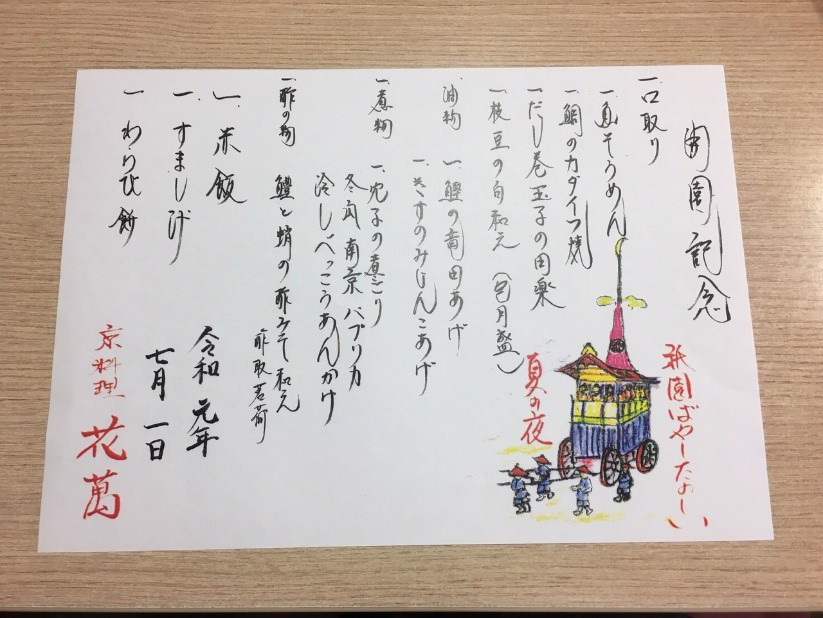 開園記念
一、口取り
一、魚そうめん
一、鯛のカダイフ焼
一、だし巻玉子の田楽
一、枝豆の白和え
油物
一、の竜田あげ
一、きすのみじんこあげ
一、煮物
一、子の煮こごり
冬瓜 南京 パプリカ
冷しべっこうあんかけ
一、酢の物
鱧と蛸の酢みそ和え
酢取茗荷
一、赤飯
一、すまし汁
一 わらび餅
令和元年
七月一日
京料理 花萬
祇園ばやしたのしい
夏の夜